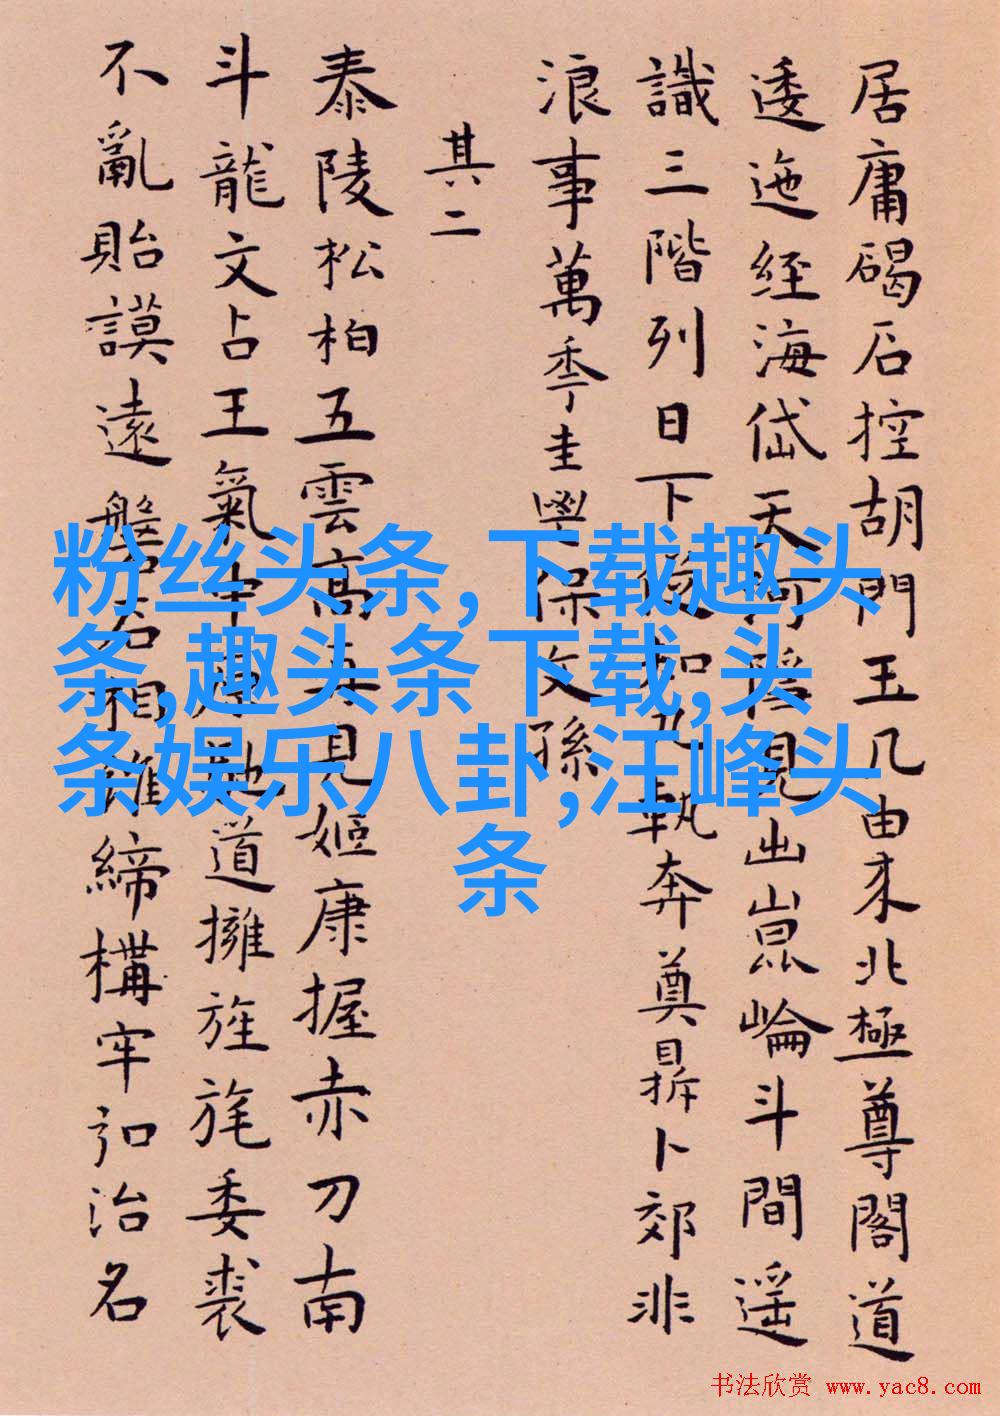 居庸碣石控胡門王几由来北極尊閣道
逶迤經海岱天河隱見出崑崙斗間遥
識三階列日下 執奔奠鼎卜郊非
浪事萬季圭學保文孫
其二
泰陵松柏五雲高 見姬康握赤刀南
斗龍文占王氣中 道擁旌旄委裘
不亂貽謨遠盤石相維締構牢 治名
粉丝头条,下载趣头
条,趣头条下载,头
条娱乐八卦,汪峰头
条
书法欣赏 www.yac8.com